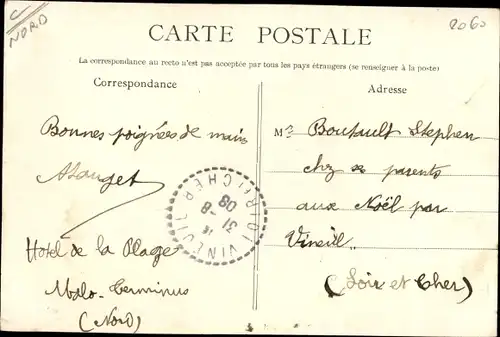 C
NORD
2060
CARTE POSTALE
La correspondance au recto n'est pas acceptée par tous les pays étrangers (se renseigner à la poste)
Correspondance
Bonnes poignées de mains
Hôtel de la Plage
Malo-Terminus
(Nord)
Adresse
Mr Boutault Stephen
chez ses parents
aux Noël par
Vineuil
(Loir et Cher)
VINEUIL
31 -8
08